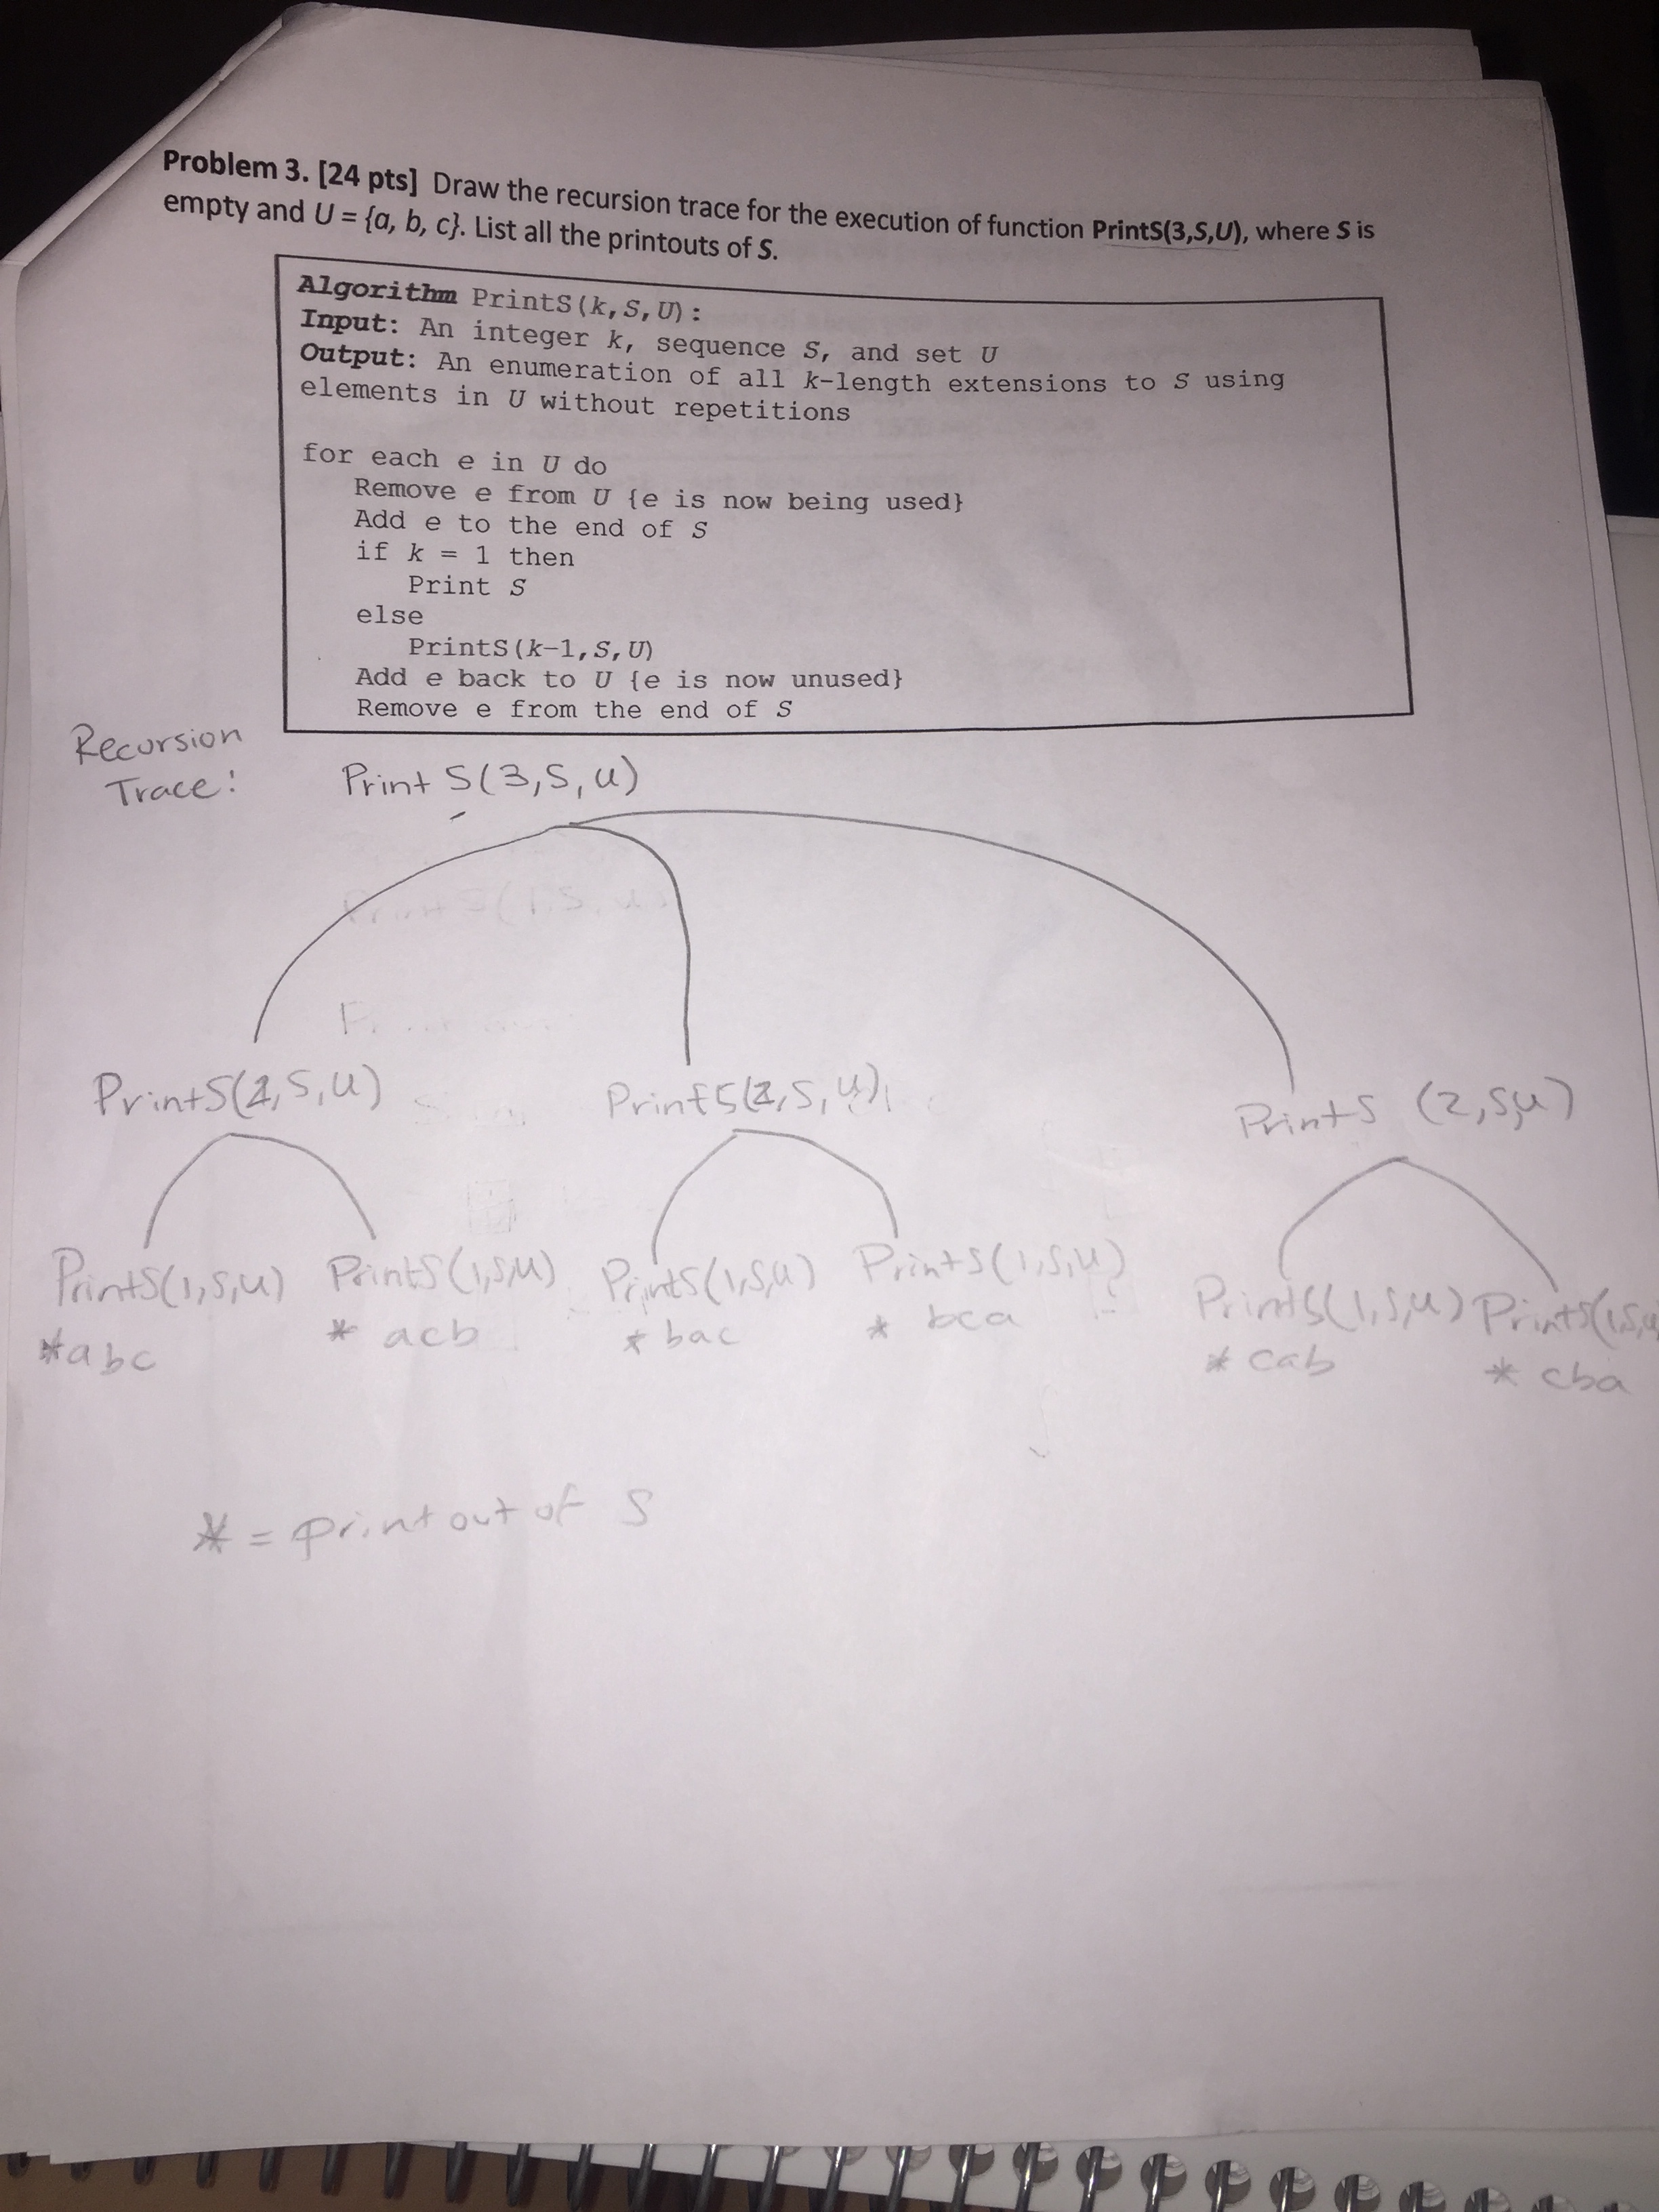 Problem 3. [24 pts] Draw the recursion trace for the execution of function PrintS(3,S,U), where S is
empty and U = {a, b, c}. List all the printouts of S.
Algorithm PrintS(k,S,U):
Input: An integer k, sequence S, and set U
Output: An enumeration of all k-length extensions to S using
elements in U without repetitions
for each e in U do
Remove e from U {e is now being used}
Add e to the end of S
if k = 1 then
Print S
else
PrintS(k-1,S,U)
Add e back to U {e is now unused}
Remove e from the end of S
Recursion
Trace:
Print S(3,S,U)
PrintS(2,S,U) PrintS(2,S,U) PrintS (2,S,U)
PrintS(1,S,U) PrintS(1,S,U) PrintS(1,S,U) PrintS(1,S,U) PrintS(1,S,U) PrintS(1,S,U
*abc * acb * bac * bca * cab * cba
* = printout of S